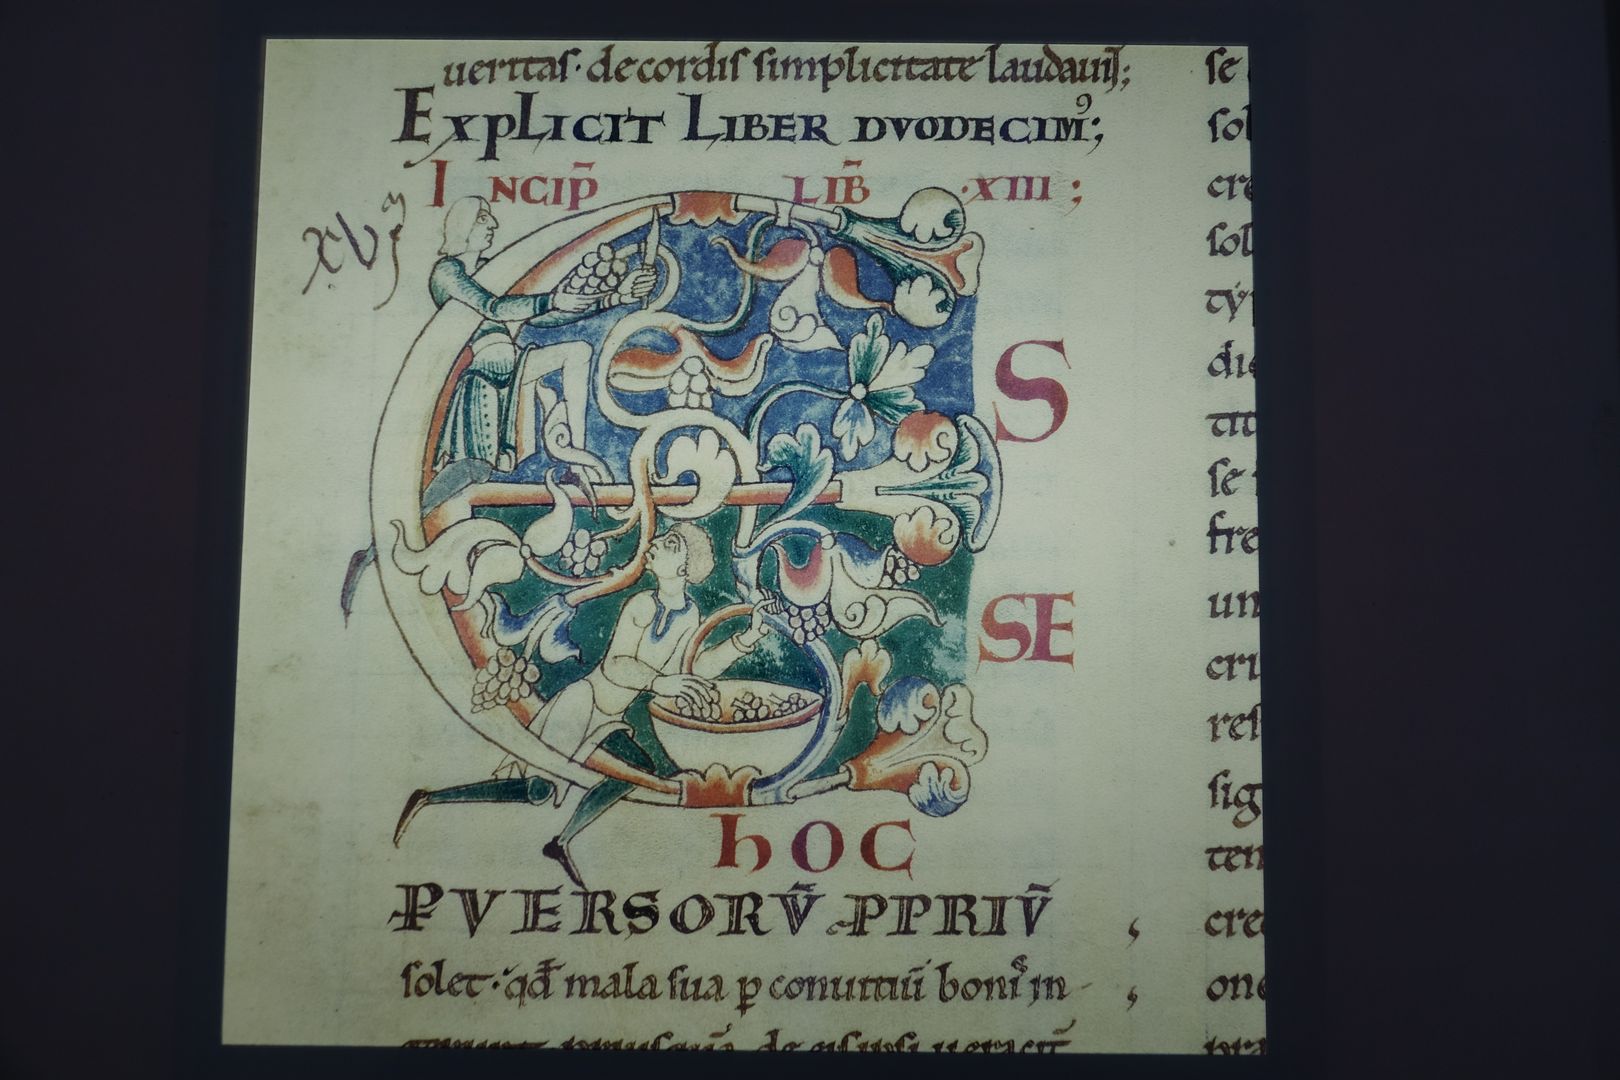 ueritas· de cordis simplicitate laudauit;
EXPLICIT LIBER DVODECIMꝰ;
INCIP̃ LIB̃ ·XIII;
xvj
ESSE
hOC
ꝑVERSORṼ ꝓPRIṼ
solet· qđ mala sua ꝑ conuitiū boniſ in
se
sol
cre
sol
typ
die
tit
se
fre
un
cru
res
sig
ten
cre
one